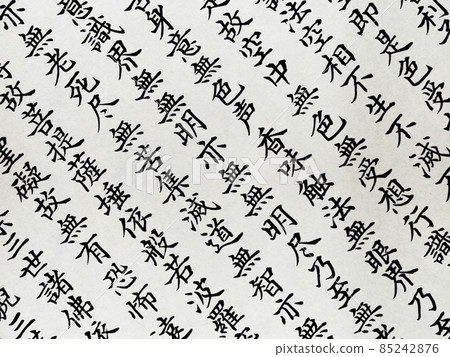 即是色受
法空相不生不滅
故空中無色無受想行識
身意無色声香味触法無眼界乃至
意識界無無明亦無無明尽乃至無
無老死尽無苦集滅道無智亦無
故菩提薩埵依般若波羅
礙故無有恐怖遠
三世諸佛依
85242876